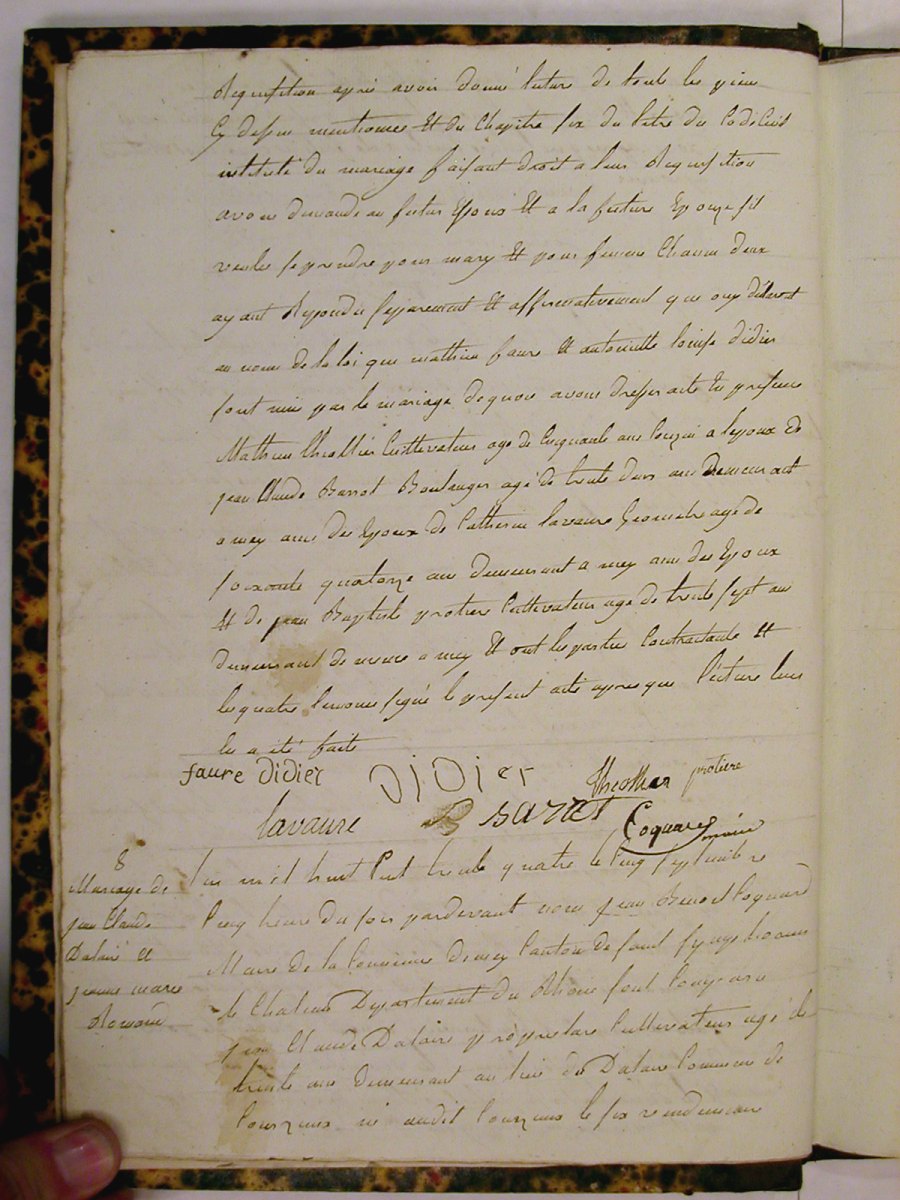 Requisition apres avoir donné lecture de toute les piece
Cy dessus mentionnee Et du Chapitre six du titre du Code Civil
intitulé du mariage faisant droit a leur Requisition
avons demandé au futur Epoux Et a la future Epouze sil
veulent se prendre pour mary Et pour femme Chacun deux
ayant Repondu separement Et affirmativement que ouy déclarons
au nom de la loi que mathieu faure Et antoinette Louise didier
sont unis par le mariage de quoi avons dressé acte En presence
Mathieu theollier Cultivateur age de Cinquante ans Couzin a lepoux de
jean Claude Barrot Boulanger agé de trente deux ans Demeurant
a mey ami des Epoux de Catherin lavaure Geometre age de
soixante quatorze ans demeurant a mey ami des Epoux
Et de jean Baptiste protiere Cultivateur age de trente sept ans
demeurant de meme a mey Et ont les parties Contractante Et
les quatre temoins signé le present acte apres que lecture leur
En a été faite
faure didier DiDier theollier protiere
lavaure Barrat Coquard maire
8
Mariage de
jean Claude
Dalaire Et
jeanne marie

Lan mil huit Cent trente quatre le Cinq septembre
Cinq heure du soir pardevant nous jean Benoit Coquard
Maire de la Commune de mey Canton de saint
le Chateau Departement du Rhône sont Comparu
jean Claude Dalaire propriétaire Cultivateur agé de
trente ans demeurant au lieu du Dalaire Commune de
Courzieux né audit Courzieux le six vendemiaire